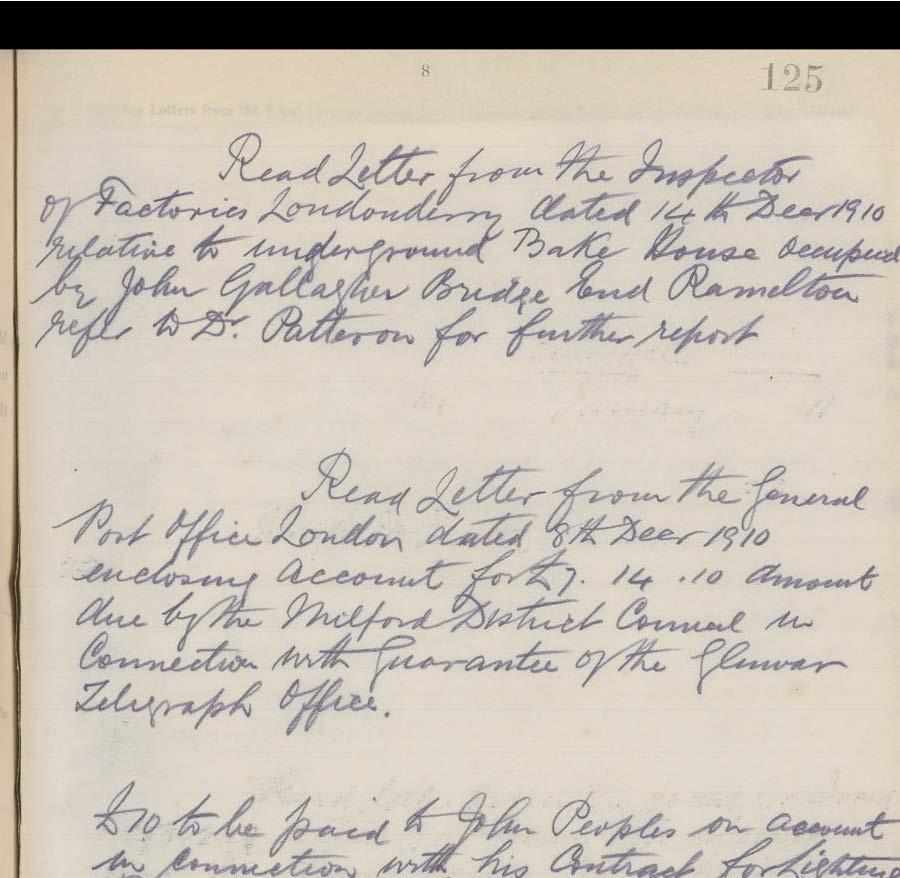 8
125
Letters from the
Read Letter from the Inspector
of Factories Londonderry dated 14th Decr 1910
relative to underground Bake House occupied
by John Gallagher Bridge End Ramelton
refer to Dr. Patterson for further report
Read Letter from the General
Post Office London dated 8th Decr 1910
enclosing account for £7. 14 .10 amount
due by the Milford District Council in
Connection with Guarantee of the Glenvar
Telegraph Office.
£10 to be paid to John Peoples on account
in connection with his Contract for Lighting